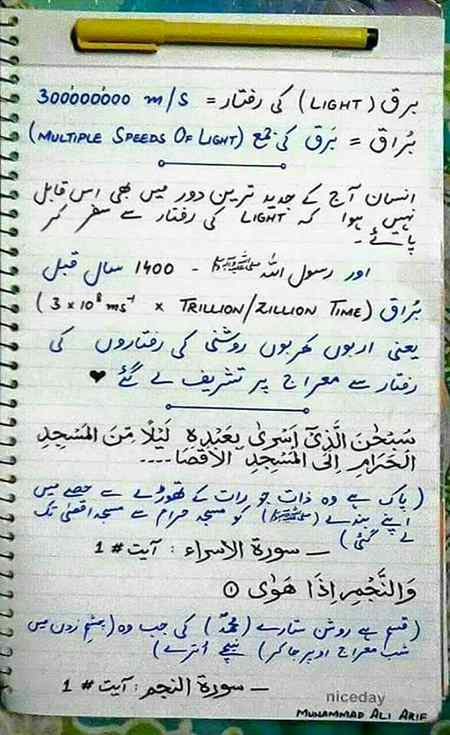 برق (LIGHT) کی رفتار = 300'000'000 m/s
بُراق = بَرق کی جمع (MULTIPLE SPEEDS OF LIGHT)
انسان آج کے جدید ترین دور میں بھی اس قابل
نہیں ہوا کہ LIGHT کی رفتار سے سفر کر
پائے۔
اور رسول اللہ ﷺ - 1400 سال قبل
بُراق (3 x 10⁸ ms⁻¹ x TRILLION/ZILLION TIME)
یعنی اربوں کھربوں روشنی کی رفتاروں کی
رفتار سے معراج پر تشریف لے گئے ♥
سُبْحٰنَ الَّذِیْٓ اَسْرٰی بِعَبْدِهٖ لَیْلًا مِّنَ الْمَسْجِدِ
الْحَرَامِ اِلَی الْمَسْجِدِ الْاَقْصَا....
(پاک ہے وہ ذات جو رات کے تھوڑے سے حصے میں
اپنے بندے (ﷺ) کو مسجد حرام سے مسجد اقصیٰ تک
لے گئی)
_ سورة الاسراء : آیت # 1
وَالنَّجْمِ اِذَا هَوٰی ۝۱
(قسم ہے روشن ستارے (محمدؐ) کی جب وہ (چشمِ زدن میں
شب معراج اوپر جا کر) نیچے اُترے)
_ سورة النجم : آیت # 1
niceday
MUHAMMAD ALI ARIF